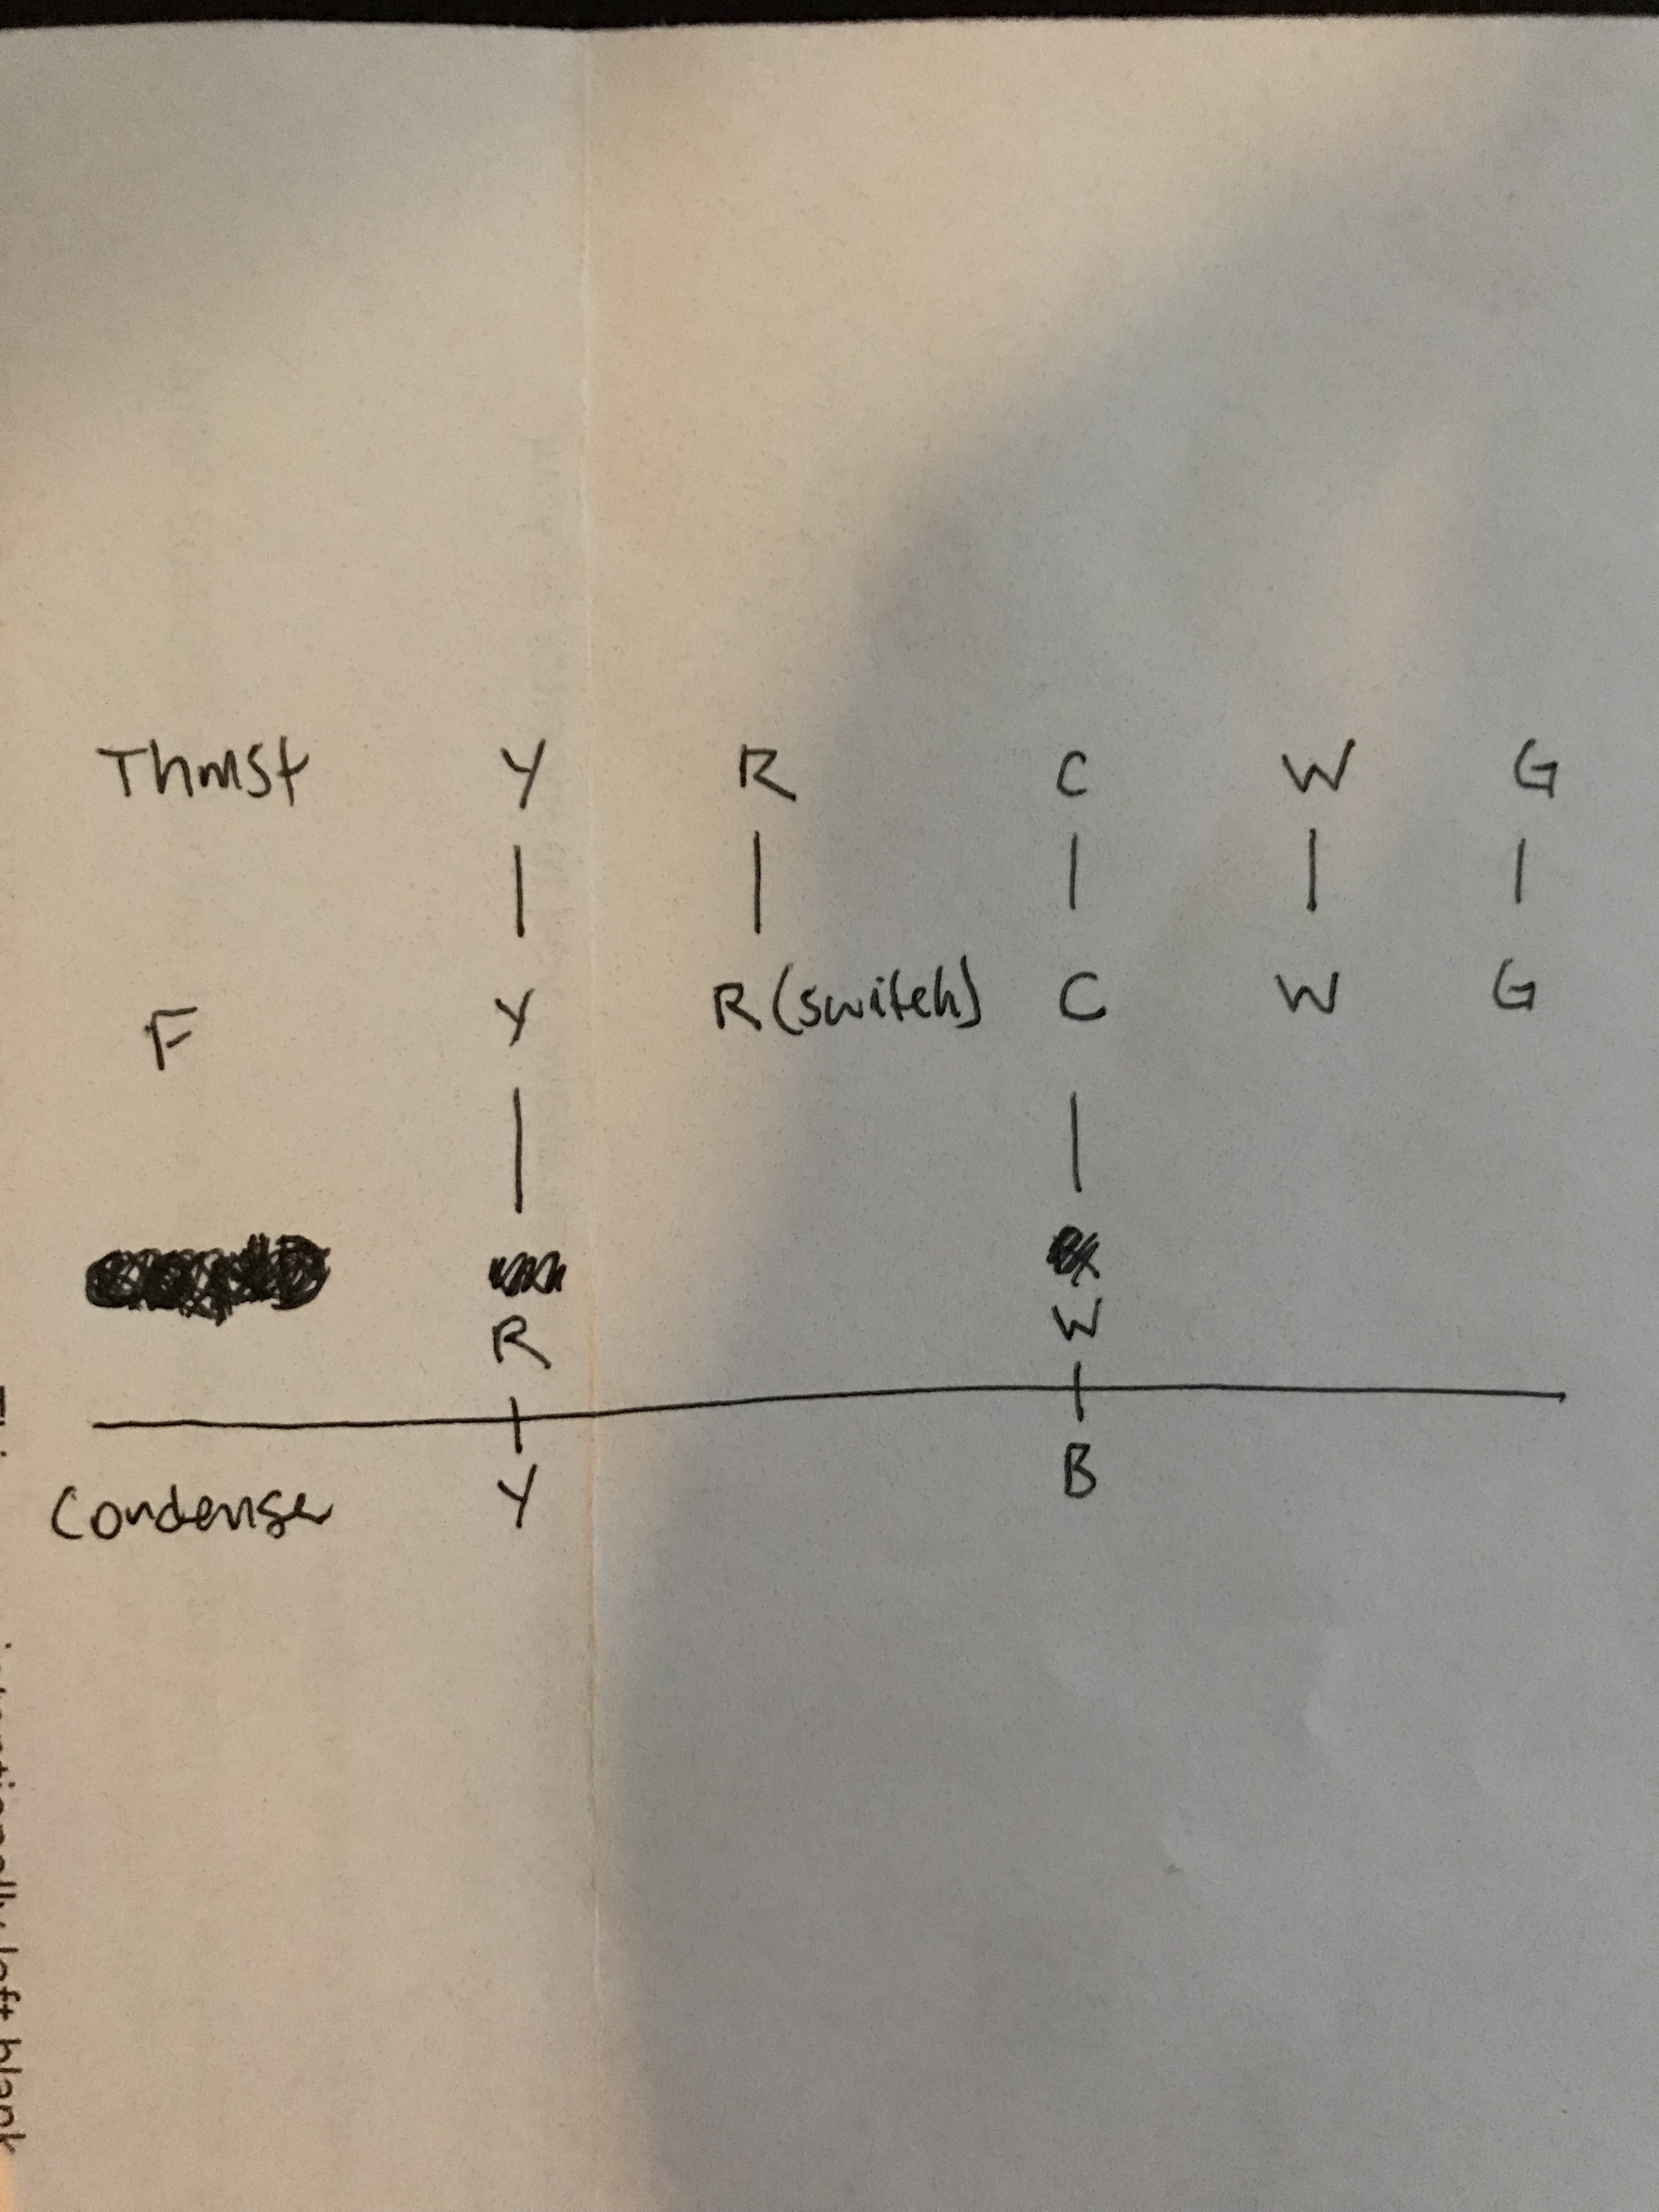 Thmst Y R C W G
F Y R (switch) C W G
R W
Condenser Y B
intentionally left blank